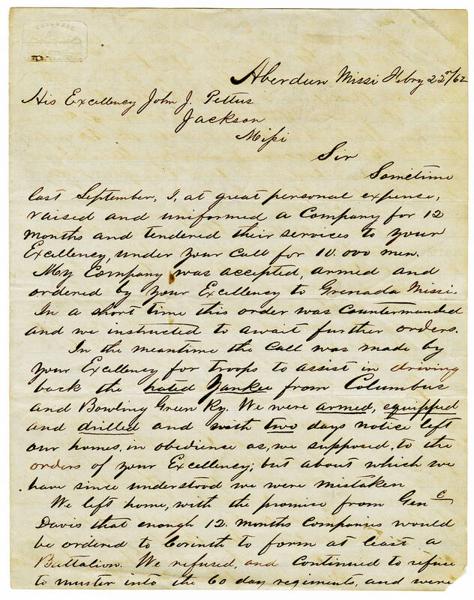 Aberdeen Missi Feby 25th/62
His Excellency John J. Pettus
Jackson
Missi
Sir
Sometime
last September, I, at great personal expense,
raised and uniformed a Company for 12
months and tendered their services to your
Excellency, under your call for 10.000 men.
My Company was accepted, armed and
ordered by your Excellency to Grenada Missi.
In a short time this order was countermanded
and we instructed to await further orders.
In the meantime the call was made by
your Excellency for troops to assist in driving
back the hated Yankee from Columbus
and Bowling Green Ky. We were armed, equipped
and drilled and with two days notice left
our homes, in obedience as, we supposed, to the
orders of your Excellency; but about which we
have since understood we were mistaken
We left home, with the promise from Genl
Davis that enough 12 months Companies would
be ordered to Corinth to form at least a
Battalion. We refused, and continued to refuse
to muster into the 60 day regiments, and were